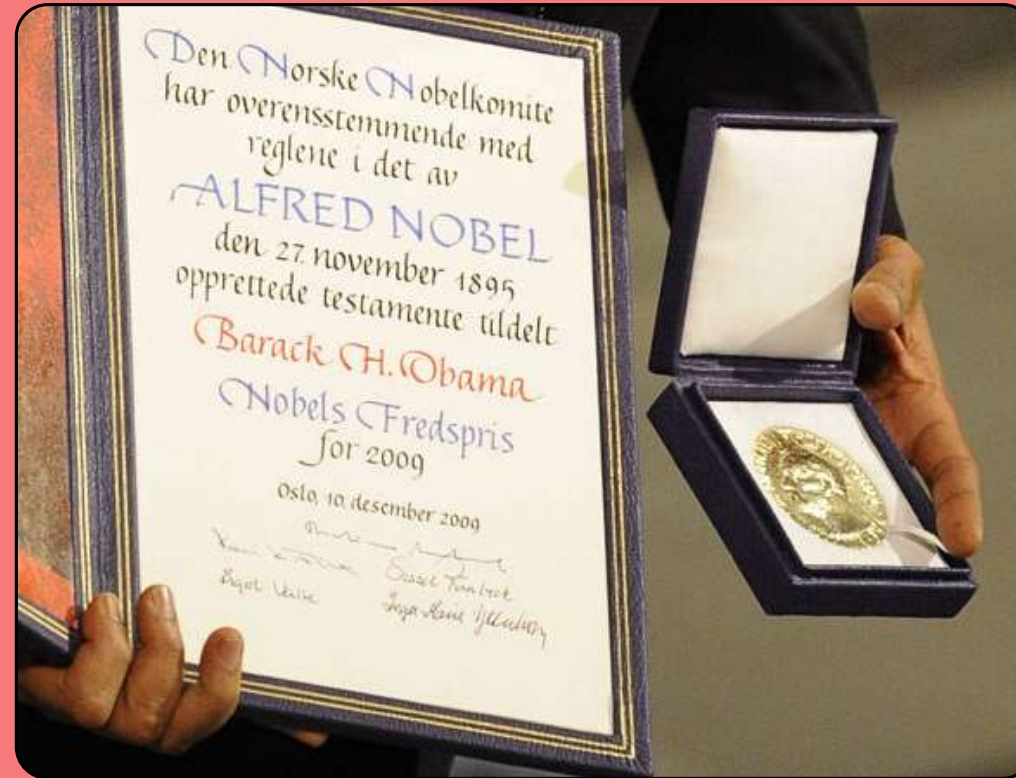 Den Norske Nobelkomite
har overensstemmende med
reglene i det av
ALFRED NOBEL
den 27. november 1895
opprettede testamente tildelt
Barack H. Obama
Nobels Fredspris
for 2009
Oslo, 10. desember 2009
Sissel Rønbeck
Inger-Marie Ytterhorn